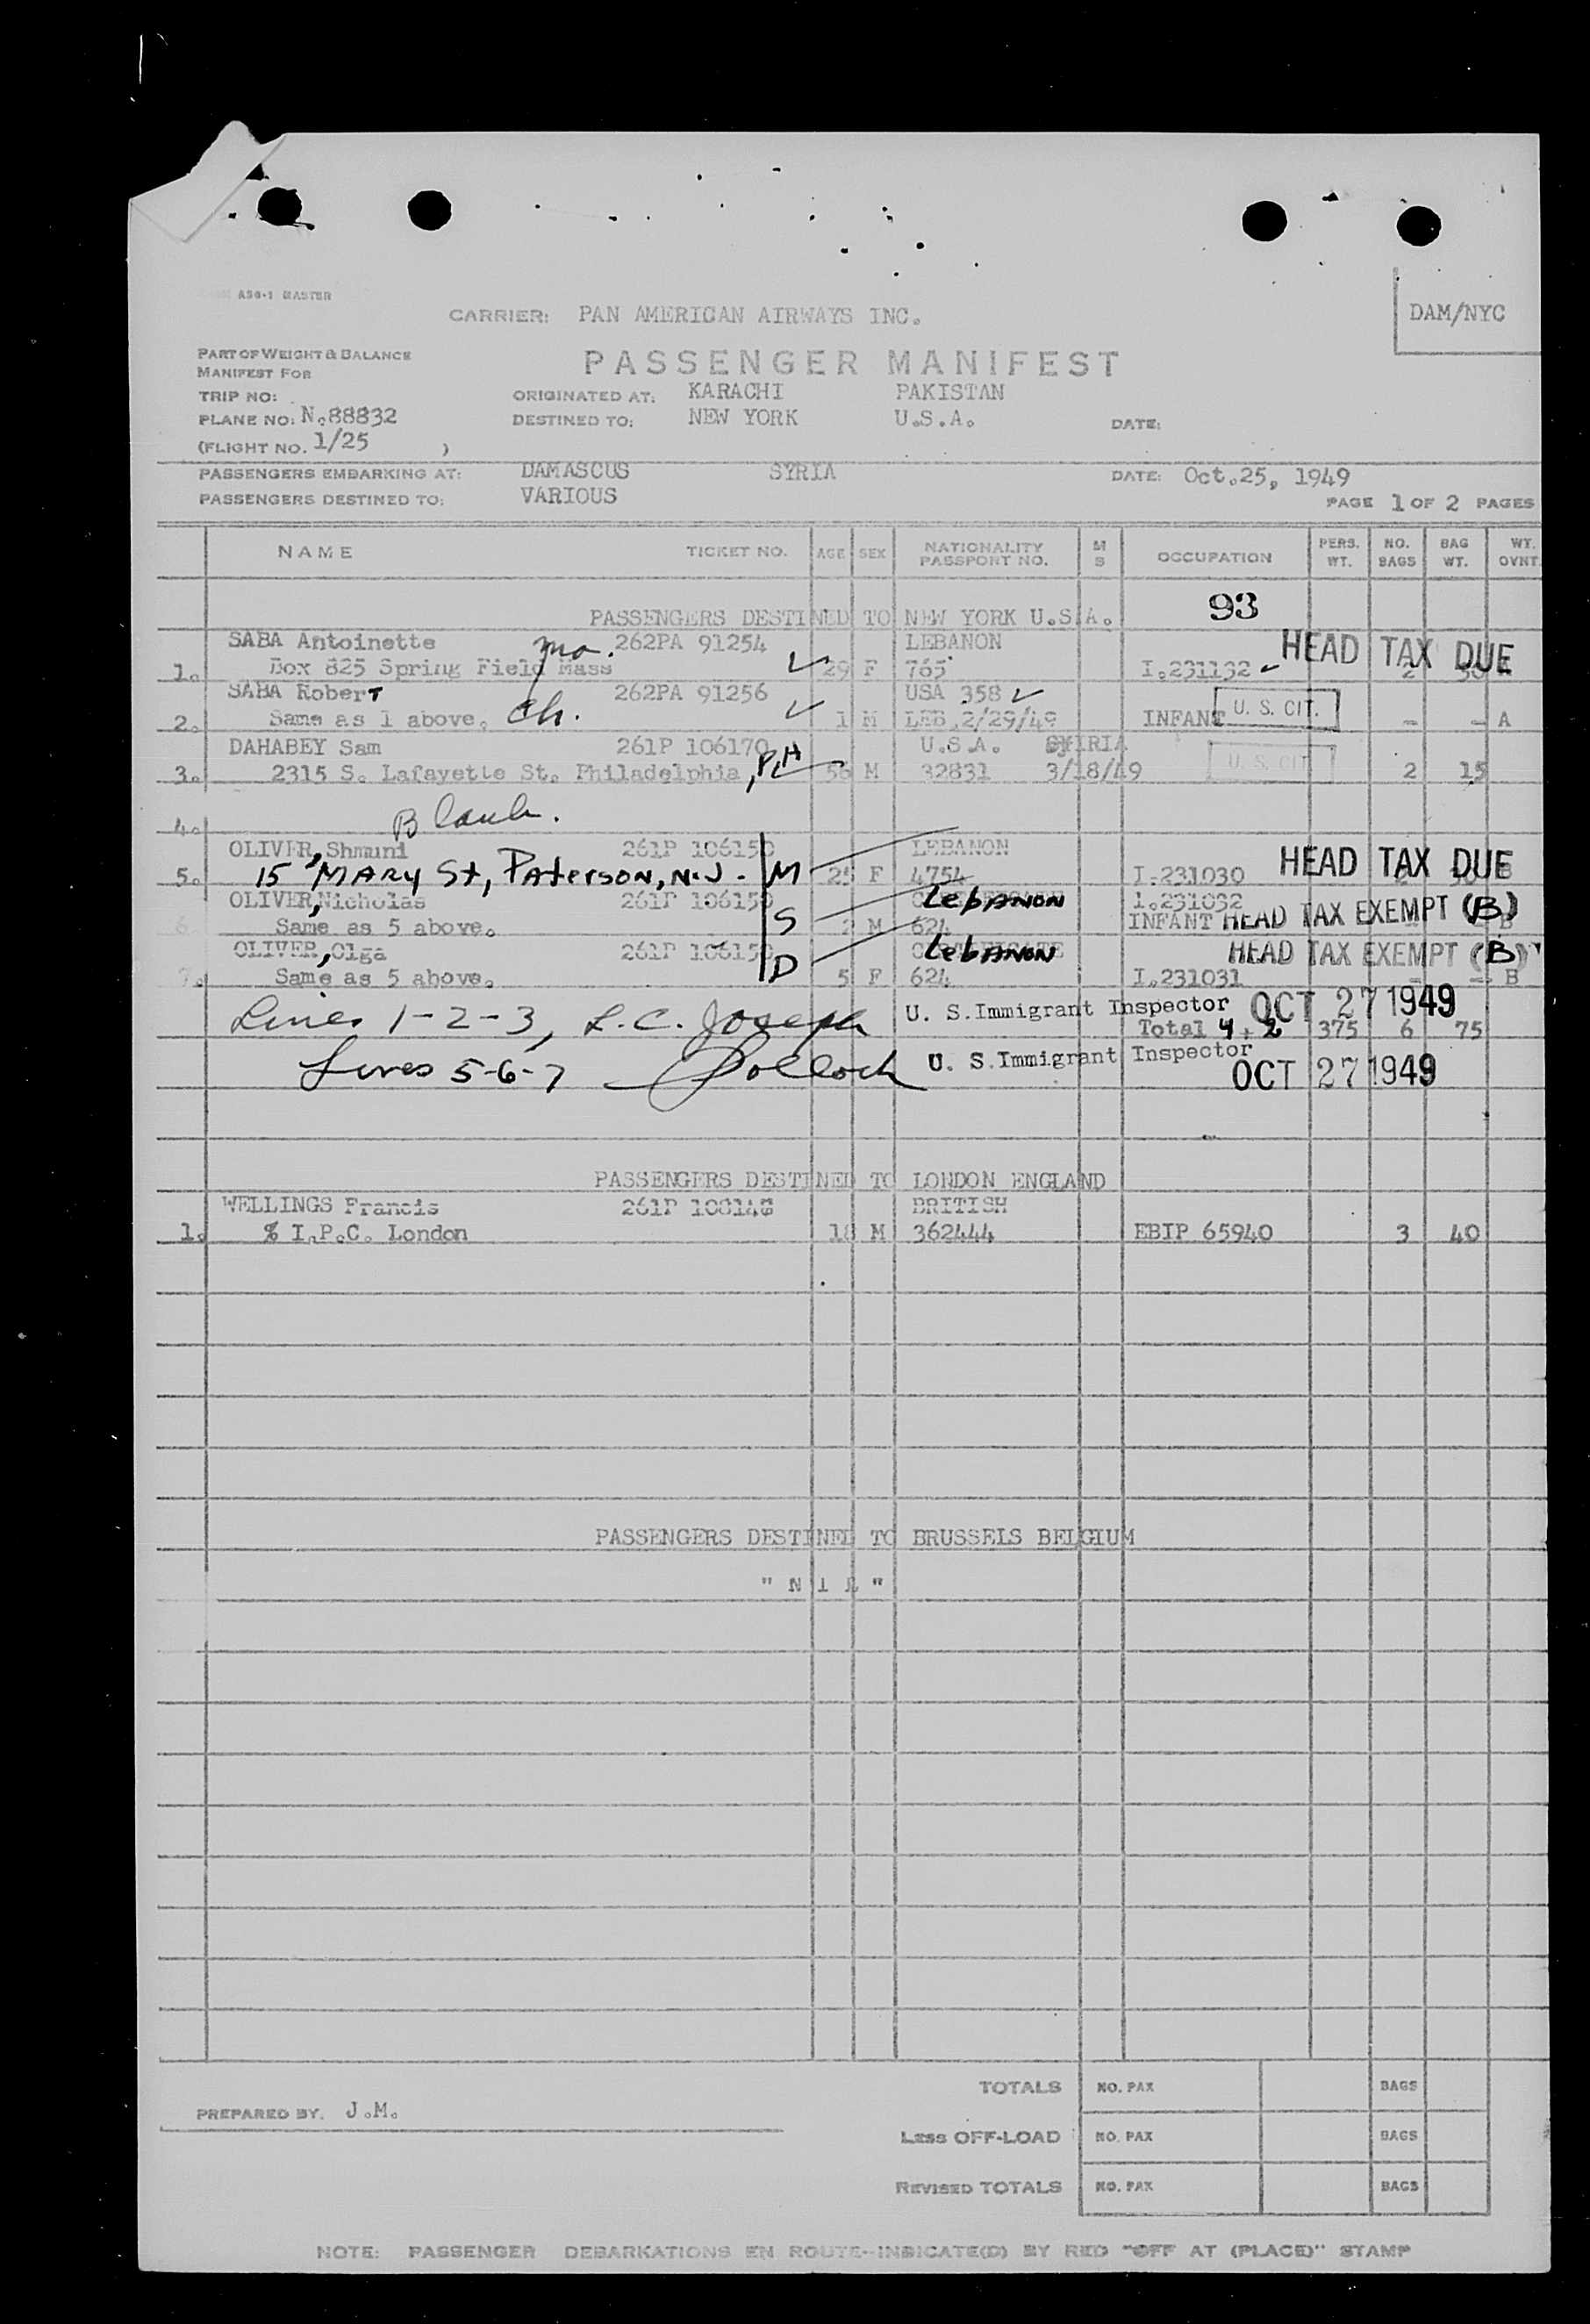 ASG-1 MASTER
CARRIER: PAN AMERICAN AIRWAYS INC.
DAM/NYC
PART OF WEIGHT & BALANCE
MANIFEST FOR
PASSENGER MANIFEST
TRIP NO: ORIGINATED AT: KARACHI PAKISTAN
PLANE NO: N.88832 DESTINED TO: NEW YORK U.S.A. DATE:
(FLIGHT NO. 1/25 )
PASSENGERS EMBARKING AT: DAMASCUS SYRIA DATE: Oct.25, 1949
PASSENGERS DESTINED TO: VARIOUS
PAGE 1 OF 2 PAGES
NAME TICKET NO. AGE SEX NATIONALITY PASSPORT NO. M S OCCUPATION PERS. WT. NO. BAGS BAG WT. WT. OVNT.
PASSENGERS DESTINED TO NEW YORK U.S.A. 93
SABA Antoinette mo. 262PA 91254 LEBANON HEAD TAX DUE
1. Box 825 Spring Field Mass 29 F 765 I.231132 2
SABA Robert 262PA 91256 USA 358
2. Same as 1 above. ch. 1 M LEB.2/29/49 INFANT U. S. CIT. - - A
DAHABEY Sam 261P 106170 U.S.A. SYRIA
3. 2315 S. Lafayette St. Philadelphia, PA 56 M 32831 3/18/49 U. S. CIT 2 15
4. Blank.
OLIVER, Shmuni 261P 106150 LEBANON HEAD TAX DUE
5. 15 MARY St, Paterson, N.J. M 25 F 4754 I.231030
OLIVER, Nicholas 261P 106150 Lebanon I.231032
6. Same as 5 above. S 2 M 624 INFANT HEAD TAX EXEMPT (B) B
OLIVER, Olga 261P 106150 CERTIFICATE Lebanon HEAD TAX EXEMPT (B)
7. Same as 5 above. D 5 F 624 I.231031 - - B
Lines 1-2-3, L.C. Joseph U. S. Immigrant Inspector OCT 27 1949
Total 4 + 2 375 6 75
Lines 5-6-7 Pollock U. S. Immigrant Inspector OCT 27 1949
PASSENGERS DESTINED TO LONDON ENGLAND
WELLINGS Francis 261P BRITISH
1. % I.P.C. London 18 M 362444 EBIP 65940 3 40
PASSENGERS DESTINED TO BRUSSELS BELGIUM
" N I L "
TOTALS NO. PAX BAGS
PREPARED BY. J.M.
Less OFF-LOAD NO. PAX BAGS
REVISED TOTALS NO. PAX BAGS
NOTE: PASSENGER DEBARKATIONS EN ROUTE--INDICATE(D) BY RED "OFF AT (PLACE)" STAMP